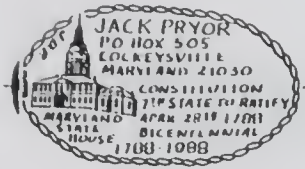 JACK PRYOR
PO BOX 505
COCKEYSVILLE
MARYLAND 21030
CONSTITUTION
7TH STATE TO RATIFY
APRIL 28TH 1788
BICENTENNIAL
MARYLAND
STATE
HOUSE
1788-1988